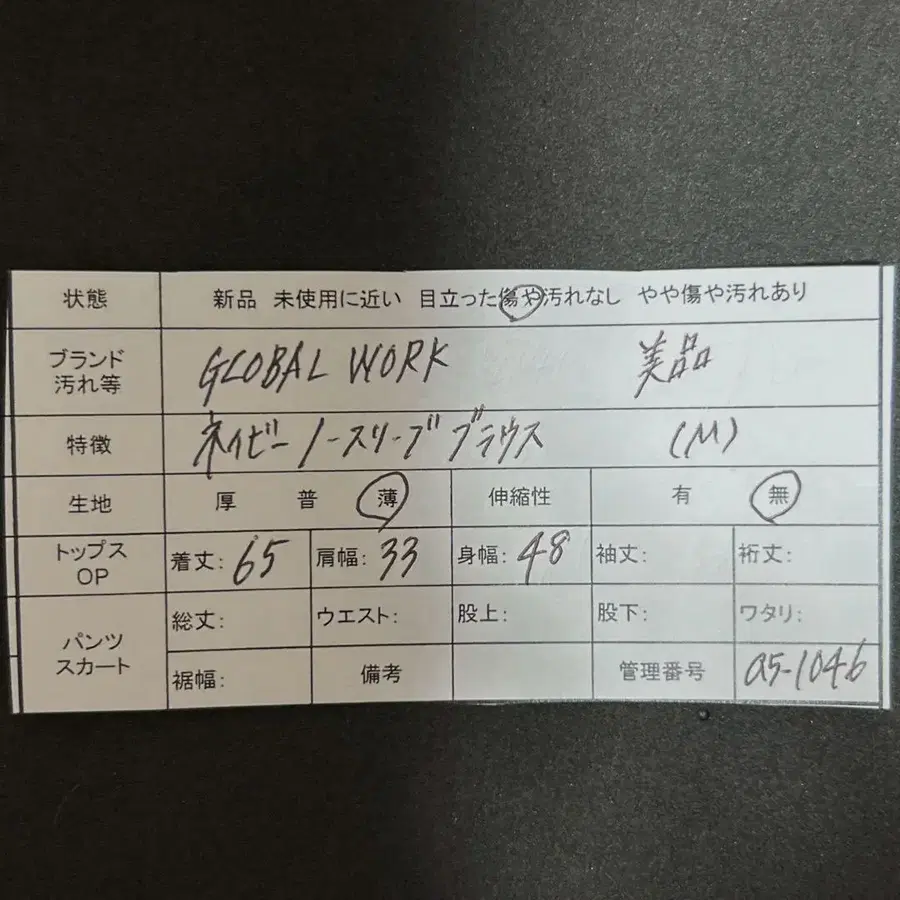 状態 新品 未使用に近い 目立った傷や汚れなし やや傷や汚れあり
ブランド 汚れ等 GLOBAL WORK 美品
特徴 ネイビー ノースリーブ ブラウス (M)
生地 厚 普 薄 伸縮性 有 無
トップス OP 着丈: 65 肩幅: 33 身幅: 48 袖丈: 裄丈:
パンツ スカート 総丈: ウエスト: 股上: 股下: ワタリ:
裾幅: 備考 管理番号 a5-1046